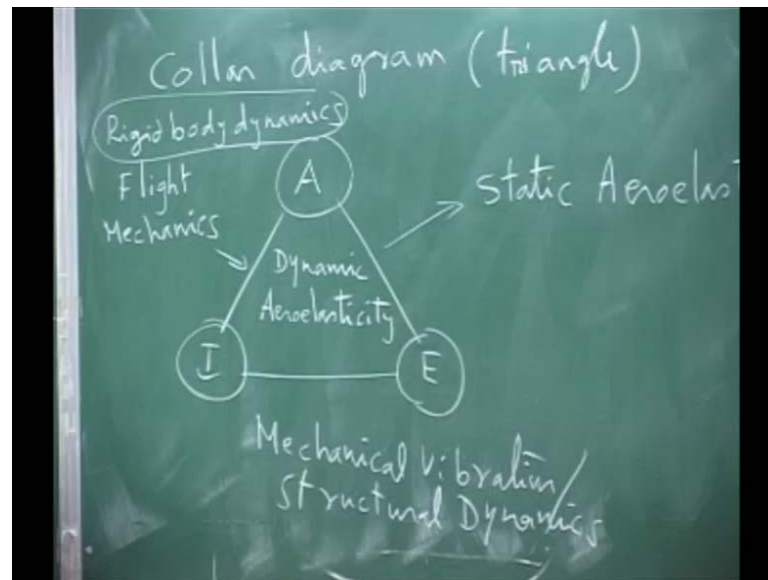 Collar diagram (triangle)
Rigid body dynamics
Flight
Mechanics
A
Static Aeroelas
Dynamic
Aeroelasticity
I
E
Mechanical Vibration/
Structural Dynamics